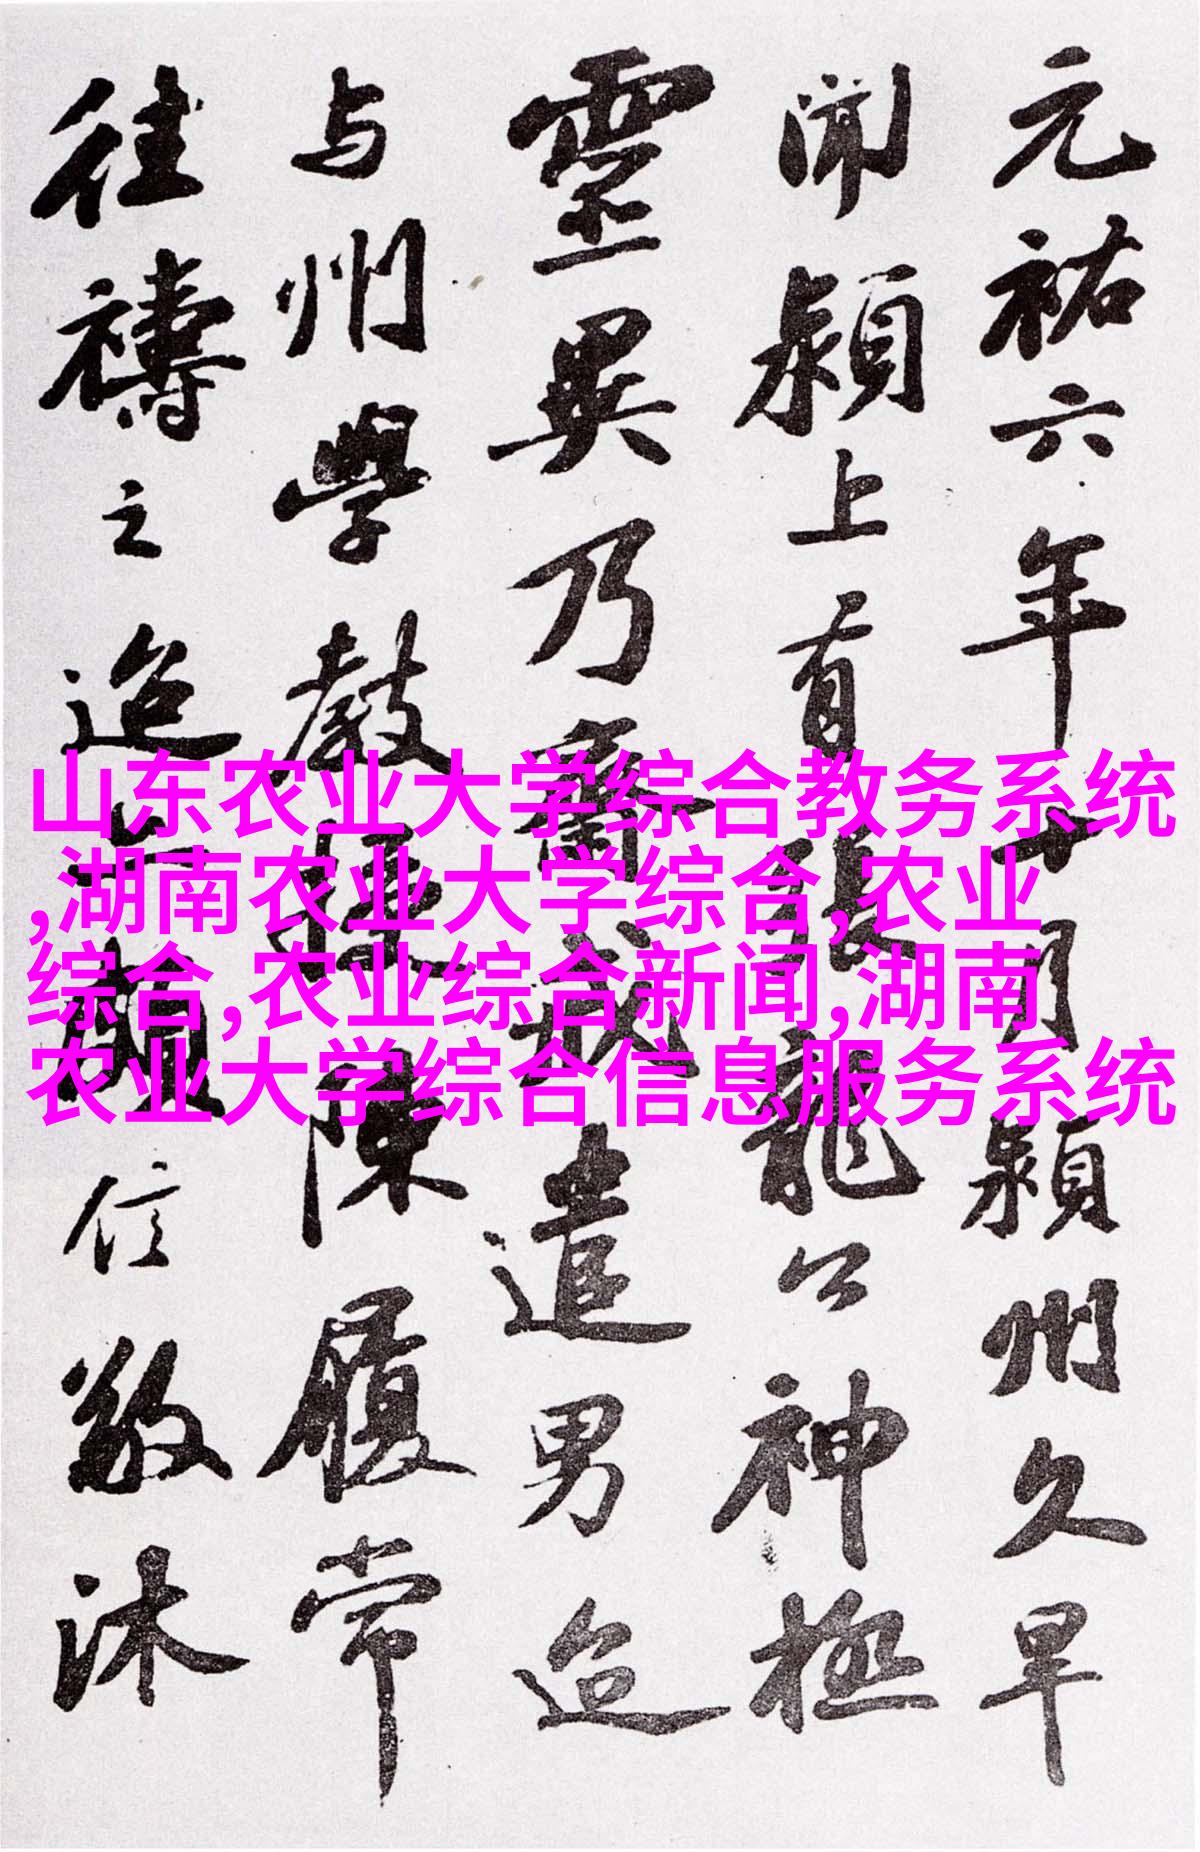 元祐六年十月潁州久旱
聞潁上有張龍公神極
靈異乃齋戒遣男迨
与州學教授陳履常
往禱之迨亦頗信敬沐
山东农业大学综合教务系统
,湖南农业大学综合,农业
综合,农业综合新闻,湖南
农业大学综合信息服务系统